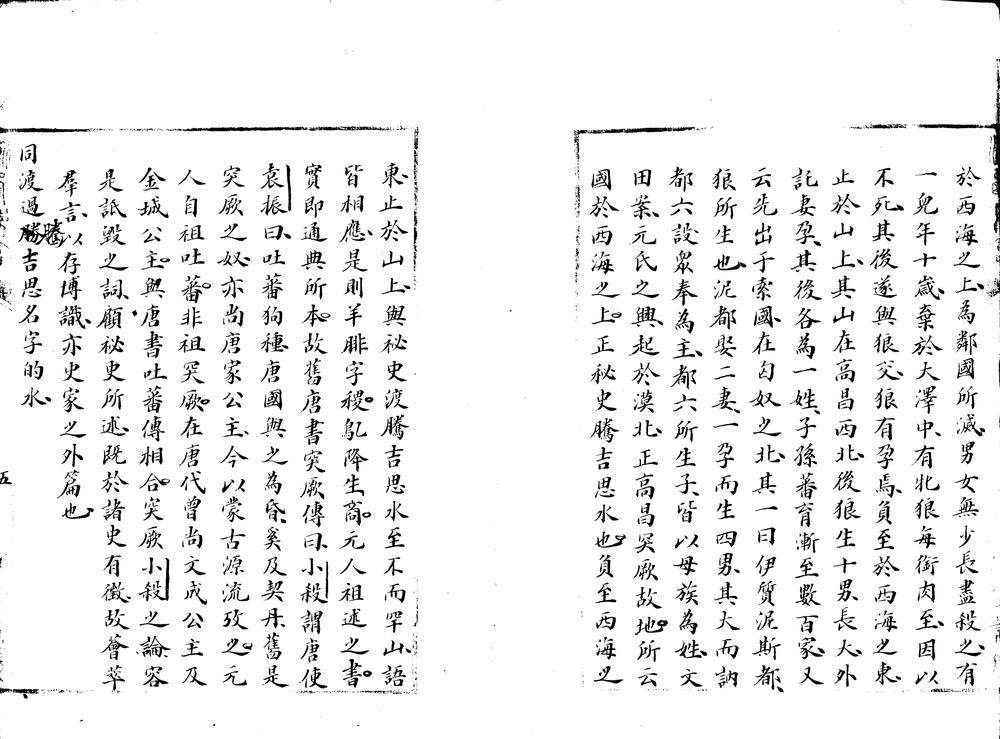 於西海之上為鄰國所滅男女無少長盡殺之有
一兒年十歲棄於大澤中有牝狼每銜肉至因以
不死其後遂與狼交狼有孕焉負至於西海之東
止於山上其山在高昌西北後狼生十男長大外
託妻孕其後各為一姓子孫蕃育漸至數百家又
云先出于索國在匈奴之北其一曰伊質泥斯都
狼所生也泥都娶二妻一孕而生四男其大而訥
都六設眾奉為主都六所生子皆以母族為姓文
田案元氏之興起於漠北正高昌突厥故地所云
國於西海之上正秘史騰吉思水也負至西海之
東止於山上與秘史渡騰吉思水至不而罕山語
皆相應是則羊腓字稷鳦降生商元人祖述之書
實即通典所本故舊唐書突厥傳曰小殺謂唐使
袁振曰吐蕃狗種唐國與之為昏奚及契丹舊是
突厥之奴亦尚唐家公主今以蒙古源流攷之元
人自祖吐蕃非祖突厥在唐代曾尚文成公主及
金城公主與唐書吐蕃傳相合突厥小殺之論容
是詆毀之詞顧秘史所述既於諸史有徵故薈萃
羣言以存博識亦史家之外篇也
同渡過騰吉思名字的水
五